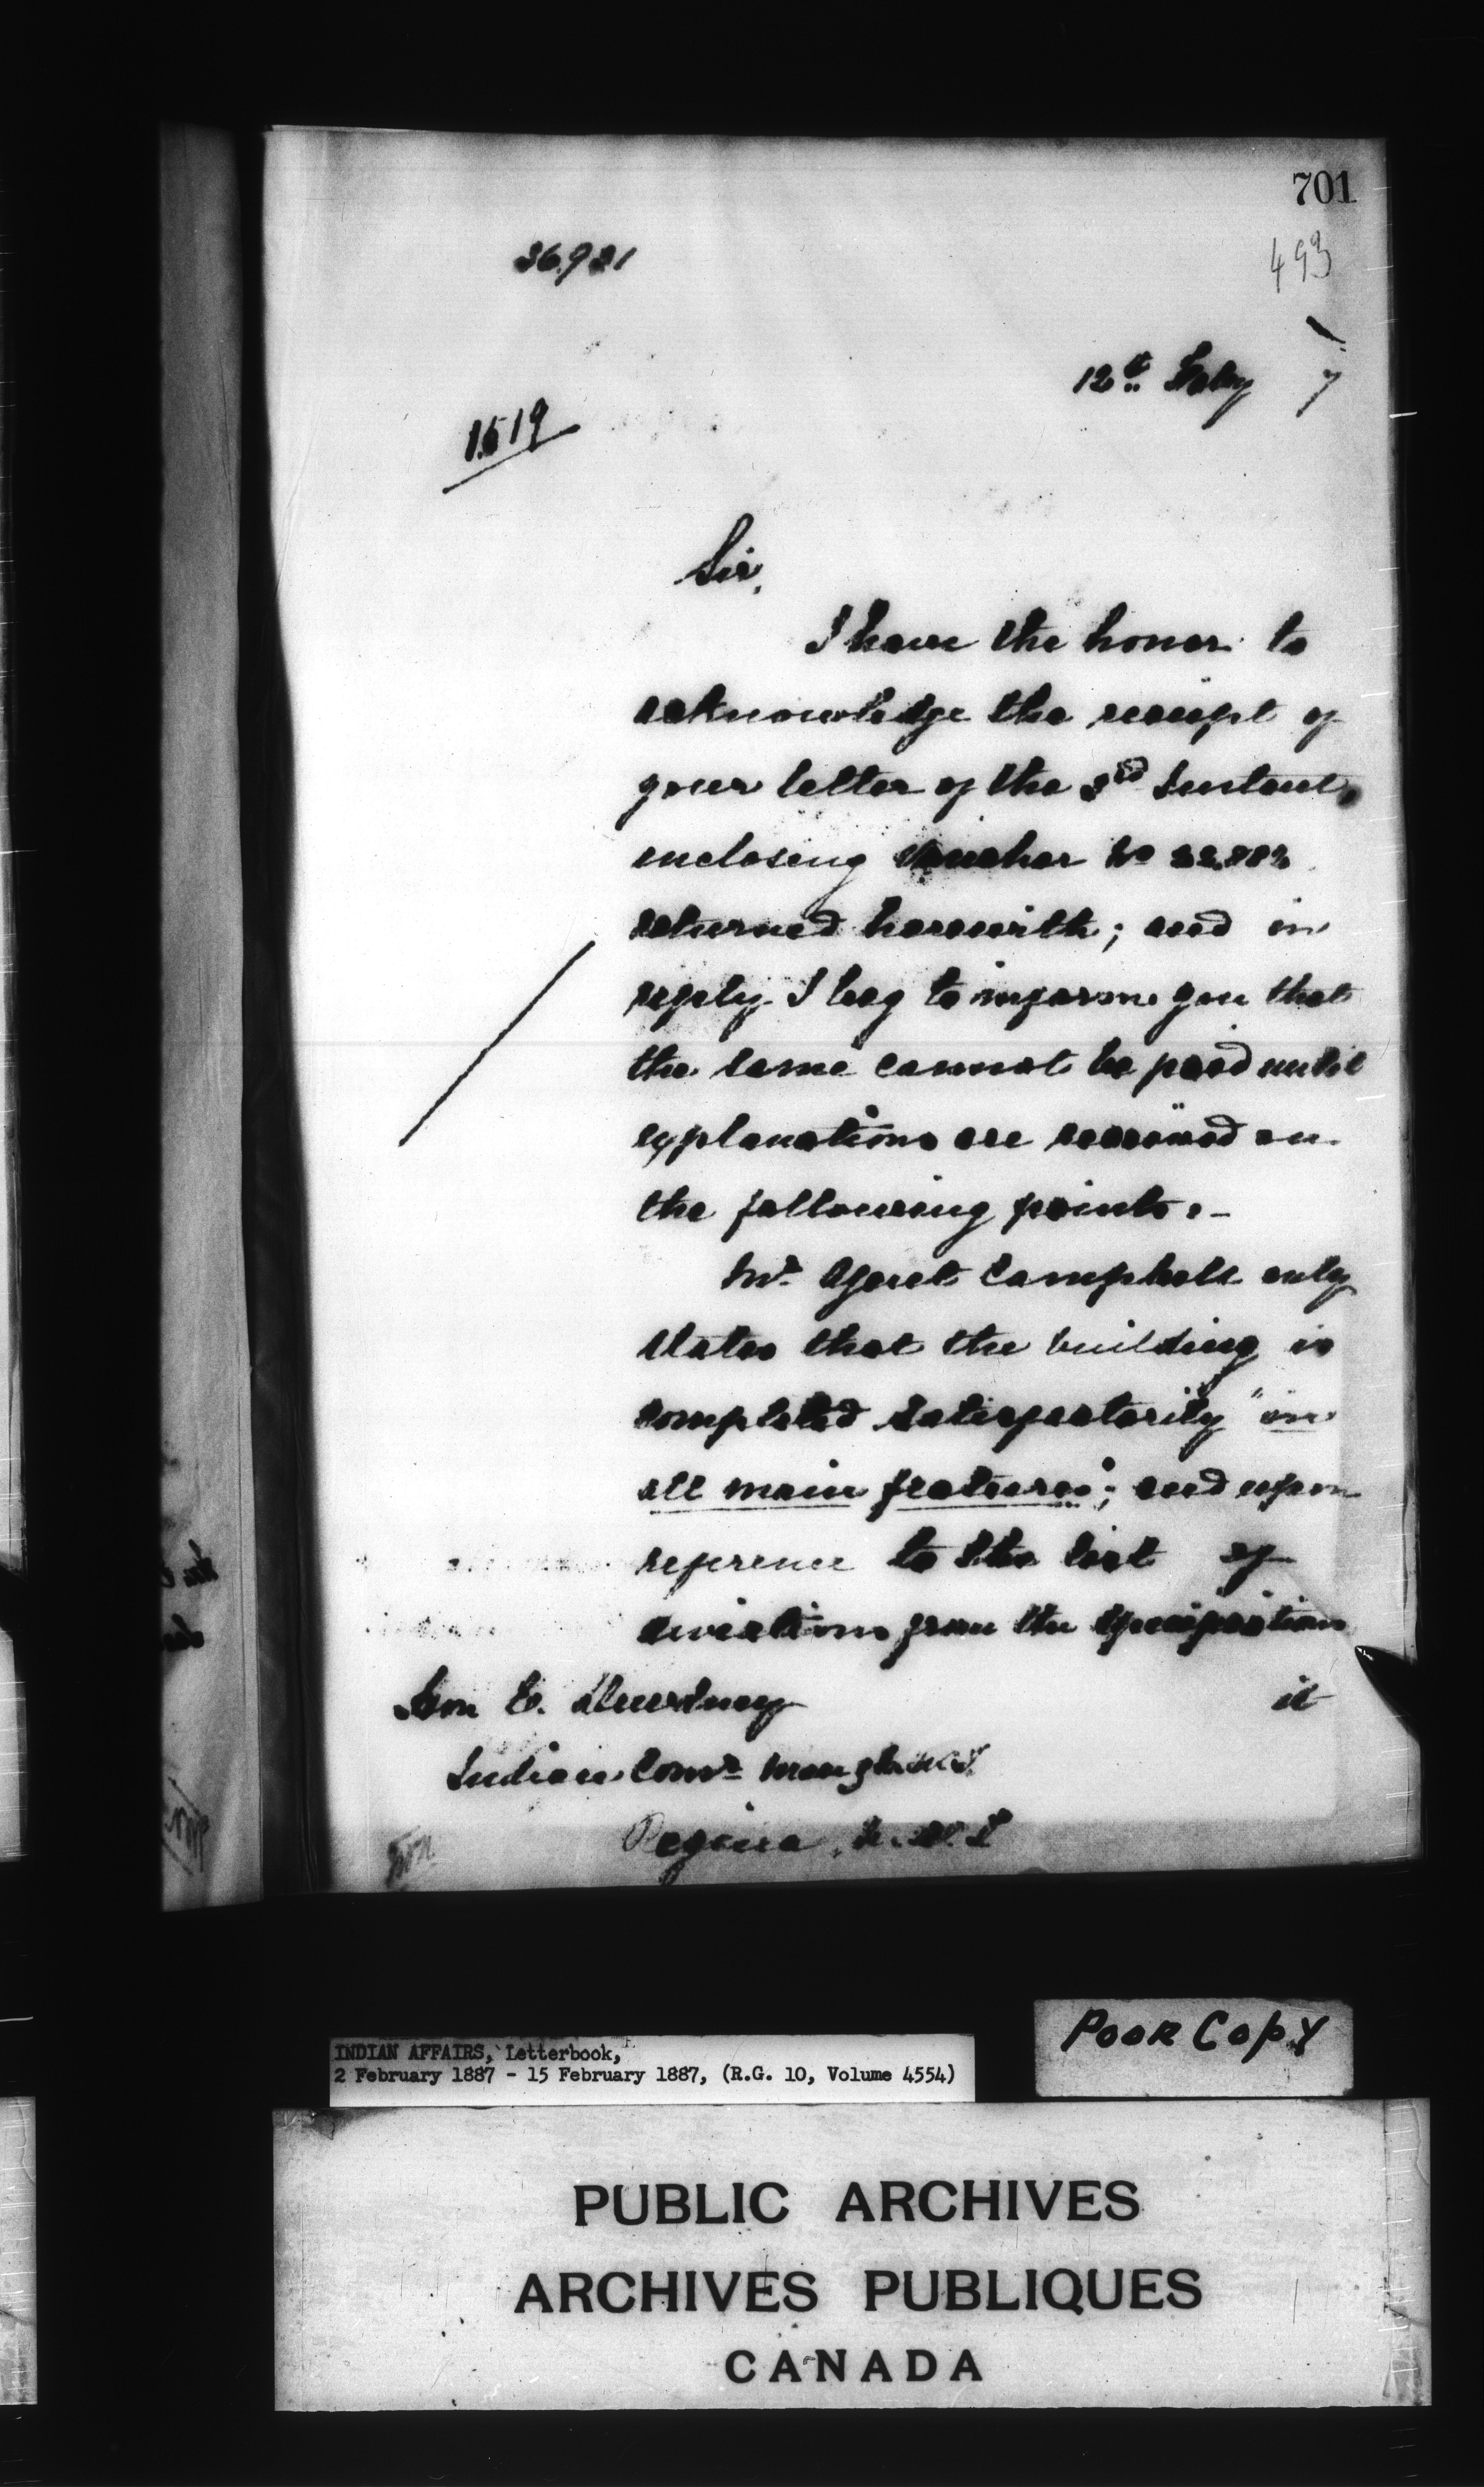 701
493
36.931
12th Feby 7
1519
Sir,
I have the honor to
acknowledge the receipt of
your letter of the 3rd Instant,
enclosing Voucher No
returned herewith; and in
reply I beg to inform you that
the same cannot be paid until
explanations are received on
the following points:-
Mr. Agent Campbell only
states that the building is
completed satisfactorily "in
all main features"; and upon
reference to the list of
deviations from the specification
it
Hon E. Dewdney
Indian Comr
Regina, N.W.T
INDIAN AFFAIRS, Letterbook,
2 February 1887 - 15 February 1887, (R.G. 10, Volume 4554)
POOR COPY
PUBLIC ARCHIVES
ARCHIVES PUBLIQUES
CANADA